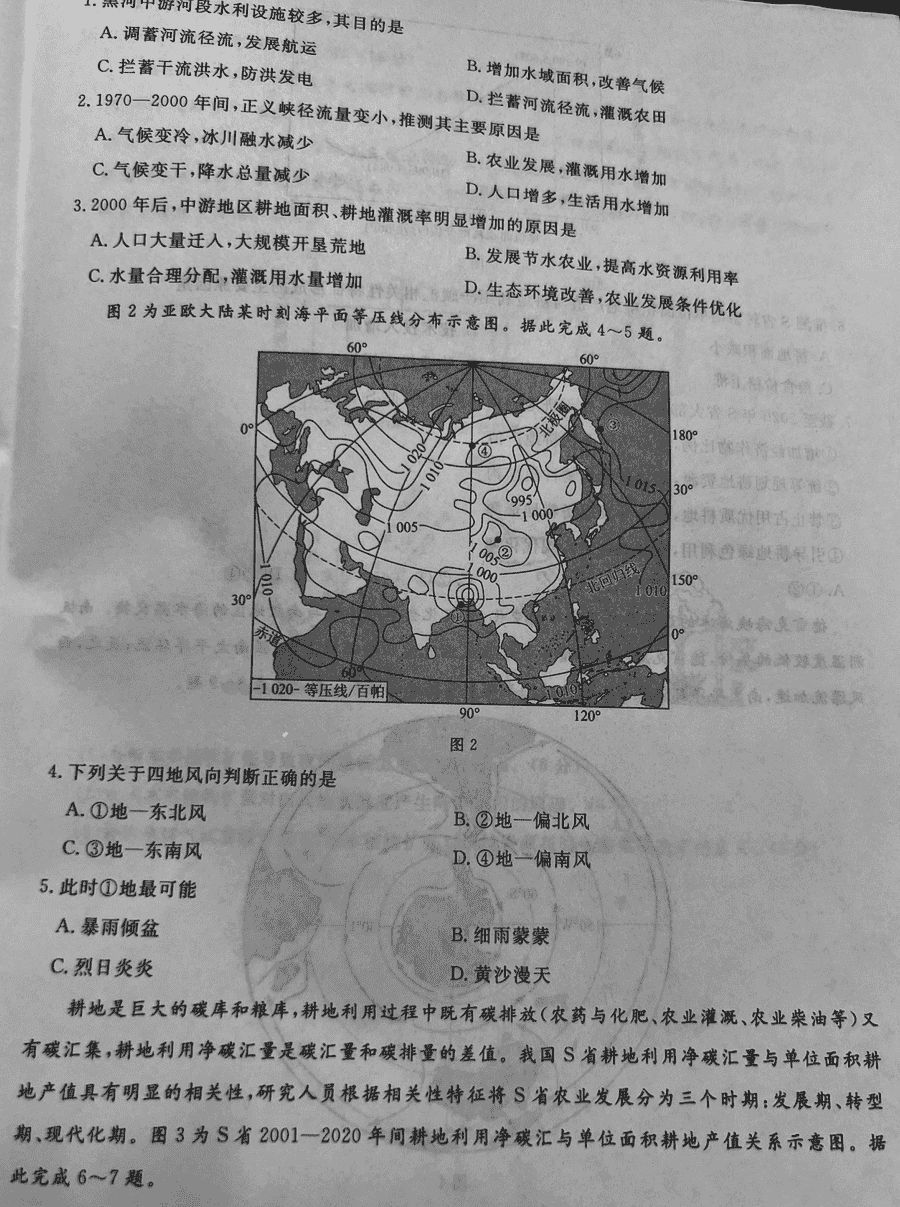 1. 黑河中游河段水利设施较多,其目的是
A. 调蓄河流径流,发展航运
B. 增加水域面积,改善气候
C. 拦蓄干流洪水,防洪发电
D. 拦蓄河流径流,灌溉农田
2. 1970—2000 年间,正义峡径流量变小,推测其主要原因是
A. 气候变冷,冰川融水减少
B. 农业发展,灌溉用水增加
C. 气候变干,降水总量减少
D. 人口增多,生活用水增加
3. 2000 年后,中游地区耕地面积、耕地灌溉率明显增加的原因是
A. 人口大量迁入,大规模开垦荒地
B. 发展节水农业,提高水资源利用率
C. 水量合理分配,灌溉用水量增加
D. 生态环境改善,农业发展条件优化
图 2 为亚欧大陆某时刻海平面等压线分布示意图。据此完成 4~5 题。
60° 60°
0°
北极圈
③
180°
④
1 020
1 010
1 015
30°
995
1 000
1 005
②
1 005
1 000
1 010
北回归线
1 010
150°
30°
①
赤道
0°
60°
-1 020- 等压线/百帕
1 010
90° 120°
图 2
4. 下列关于四地风向判断正确的是
A. ①地—东北风
B. ②地—偏北风
C. ③地—东南风
D. ④地—偏南风
5. 此时①地最可能
A. 暴雨倾盆
B. 细雨蒙蒙
C. 烈日炎炎
D. 黄沙漫天
耕地是巨大的碳库和粮库,耕地利用过程中既有碳排放(农药与化肥、农业灌溉、农业柴油等)又
有碳汇集,耕地利用净碳汇量是碳汇量和碳排量的差值。我国 S 省耕地利用净碳汇量与单位面积耕
地产值具有明显的相关性,研究人员根据相关性特征将 S 省农业发展分为三个时期:发展期、转型
期、现代化期。图 3 为 S 省 2001—2020 年间耕地利用净碳汇与单位面积耕地产值关系示意图。据
此完成 6~7 题。